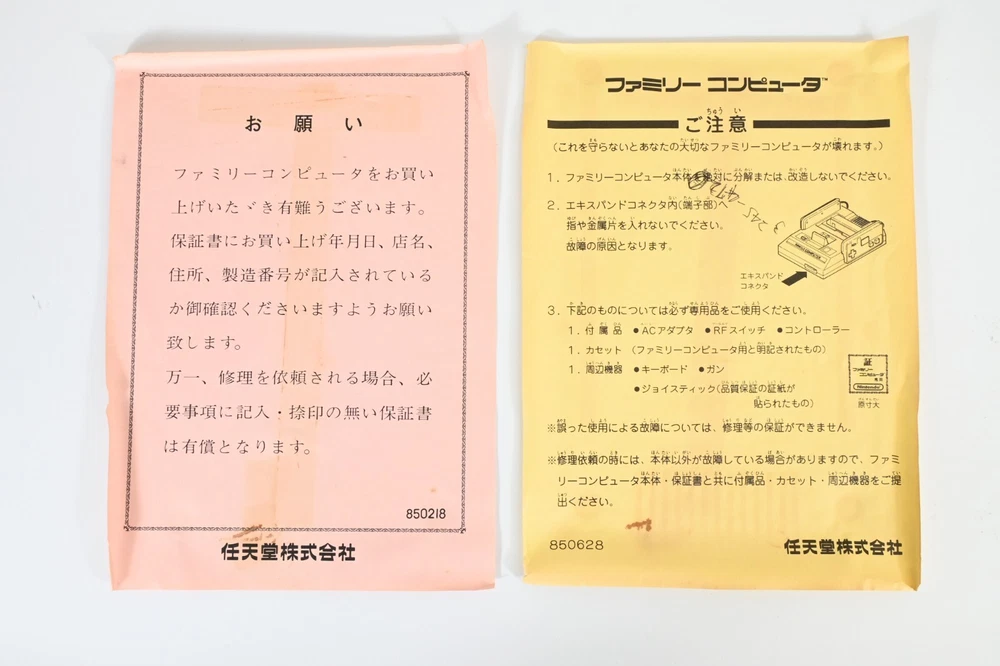 お願い
ファミリーコンピュータをお買い
上げいたゞき有難うございます。
保証書にお買い上げ年月日、店名、
住所、製造番号が記入されている
か御確認くださいますようお願い
致します。
万一、修理を依頼される場合、必
要事項に記入・捺印の無い保証書
は有償となります。
850218
任天堂株式会社
ファミリーコンピュータ™
ご注意
(これを守らないとあなたの大切なファミリーコンピュータが壊れます。)
1. ファミリーコンピュータ本体を絶対に分解または、改造しないでください。
2. エキスパンドコネクタ内(端子部)へ
指や金属片を入れないでください。
故障の原因となります。
エキスパンド
コネクタ
3. 下記のものについては必ず専用品をご使用ください。
1. 付属品 ●ACアダプタ ●RFスイッチ ●コントローラー
1. カセット (ファミリーコンピュータ用と明記されたもの)
1. 周辺機器 ●キーボード ●ガン
●ジョイスティック(品質保証の証紙が
貼られたもの)
証
ファミリー
コンピュータ
Nintendo
原寸大
※誤った使用による故障については、修理等の保証ができません。
※修理依頼の時には、本体以外が故障している場合がありますので、ファミ
リーコンピュータ本体・保証書と共に付属品・カセット・周辺機器をご提
出ください。
850628
任天堂株式会社